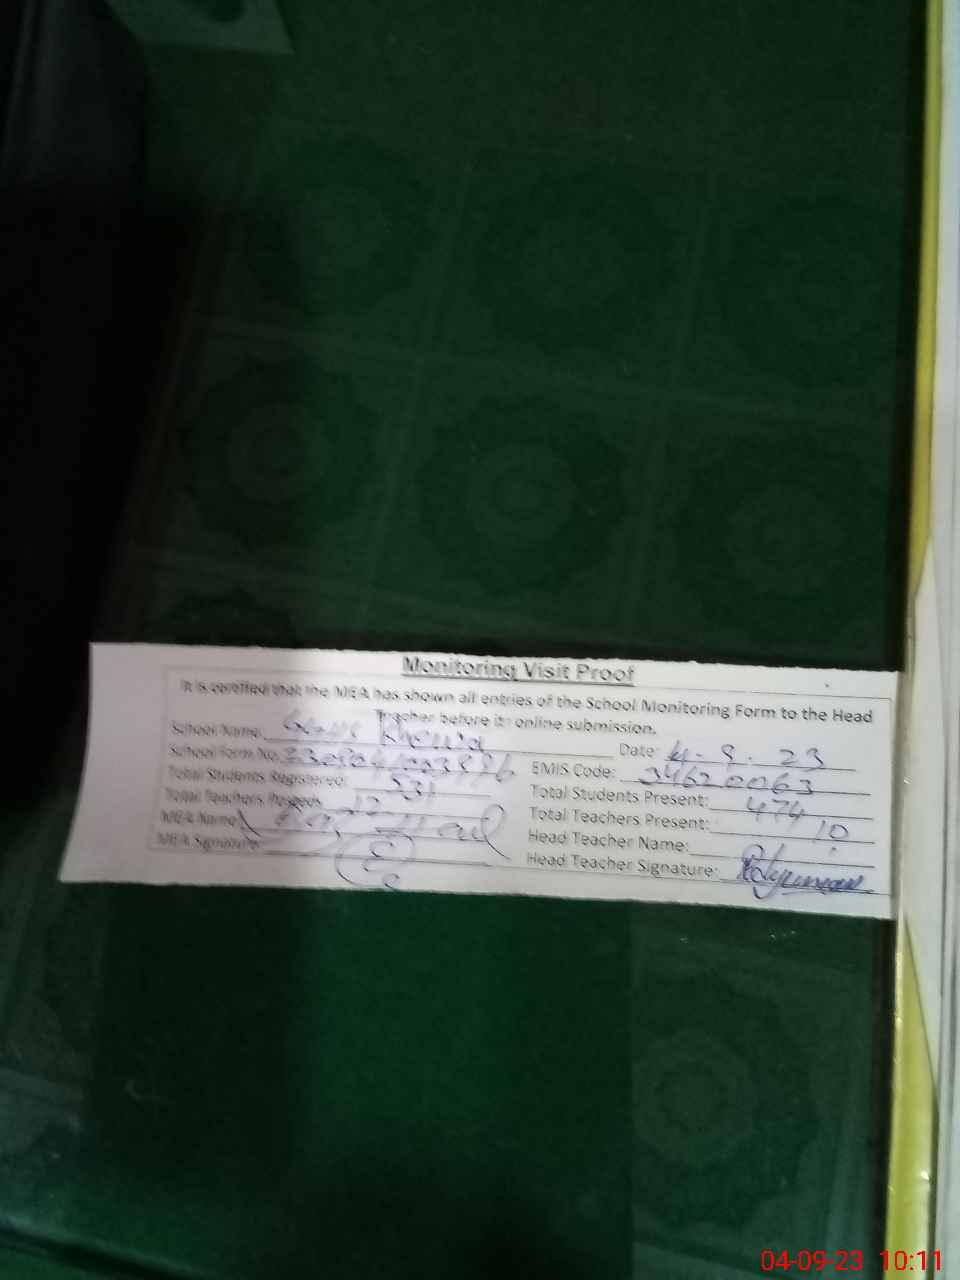 Monitoring Visit Proof
It is certified that the MEA has shown all entries of the School Monitoring Form to the Head
Teacher before its online submission.
School Name:
Date: 4.9.23
School Form No.
EMIS Code: 34620063
Total Students Registered: 531
Total Students Present: 474
Total Teachers Posted: 12
Total Teachers Present: 10
MEA Name:
Head Teacher Name:
MEA Signature:
Head Teacher Signature:
04-09-23 10:11